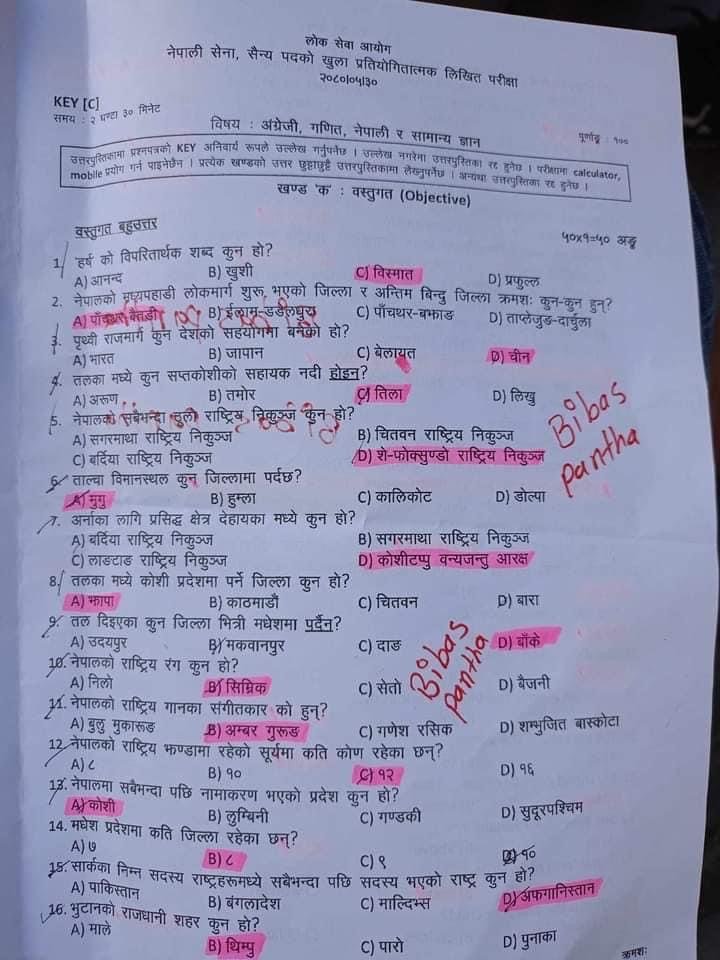 लोक सेवा आयोग
नेपाली सेना, सैन्य पदको खुला प्रतियोगितात्मक लिखित परीक्षा
२०८०।०५।३०
KEY [C]
समय : २ घण्टा ३० मिनेट
विषय : अंग्रेजी, गणित, नेपाली र सामान्य ज्ञान
पूर्णाङ्क : १००
उत्तरपुस्तिकामा प्रश्नपत्रको KEY अनिवार्य रूपले उल्लेख गर्नुपर्नेछ । उल्लेख नगरेमा उत्तरपुस्तिका रद्द हुनेछ । परीक्षामा calculator,
mobile प्रयोग गर्न पाइनेछैन । प्रत्येक खण्डको उत्तर छुट्टाछुट्टै उत्तरपुस्तिकामा लेख्नुपर्नेछ । अन्यथा उत्तरपुस्तिका रद्द हुनेछ ।
खण्ड 'क' : वस्तुगत (Objective)
वस्तुगत बहुउत्तर
५०x१=५० अङ्क
1. 'हर्ष' को विपरितार्थक शब्द कुन हो?
A) आनन्द B) खुशी C) विस्मात D) प्रफुल्ल
2. नेपालको मध्यपहाडी लोकमार्ग शुरू भएको जिल्ला र अन्तिम बिन्दु जिल्ला क्रमशः कुन-कुन हुन्?
A) पाँचथर-बैतडी B) ईलाम-डडेलधुरा C) पाँचथर-बझाङ D) ताप्लेजुङ-दार्चुला
3. पृथ्वी राजमार्ग कुन देशको सहयोगमा बनेको हो?
A) भारत B) जापान C) बेलायत D) चीन
4. तलका मध्ये कुन सप्तकोशीको सहायक नदी होइन?
A) अरूण B) तमोर C) तिला D) लिखु
5. नेपालको सबैभन्दा ठुलो राष्ट्रिय निकुञ्ज कुन हो?
A) सगरमाथा राष्ट्रिय निकुञ्ज B) चितवन राष्ट्रिय निकुञ्ज
C) बर्दिया राष्ट्रिय निकुञ्ज D) शे-फोक्सुण्डो राष्ट्रिय निकुञ्ज
Bibas
pantha
6. ताल्चा विमानस्थल कुन जिल्लामा पर्दछ?
A) मुगु B) हुम्ला C) कालिकोट D) डोल्पा
7. अर्नाका लागि प्रसिद्ध क्षेत्र देहायका मध्ये कुन हो?
A) बर्दिया राष्ट्रिय निकुञ्ज B) सगरमाथा राष्ट्रिय निकुञ्ज
C) लाङटाङ राष्ट्रिय निकुञ्ज D) कोशीटप्पु वन्यजन्तु आरक्ष
8. तलका मध्ये कोशी प्रदेशमा पर्ने जिल्ला कुन हो?
A) झापा B) काठमाडौं C) चितवन D) बारा
9. तल दिइएका कुन जिल्ला भित्री मधेशमा पर्दैन?
A) उदयपुर B) मकवानपुर C) दाङ D) बाँके
Bibas
pantha
10. नेपालको राष्ट्रिय रंग कुन हो?
A) निलो B) सिम्रिक C) सेतो D) बैजनी
11. नेपालको राष्ट्रिय गानका संगीतकार को हुन्?
A) बुलु मुकारूङ B) अम्बर गुरूङ C) गणेश रसिक D) शम्भुजित बास्कोटा
12. नेपालको राष्ट्रिय झण्डामा रहेको सूर्यमा कति कोण रहेका छन्?
A) ८ B) १० C) १२ D) १६
13. नेपालमा सबैभन्दा पछि नामाकरण भएको प्रदेश कुन हो?
A) कोशी B) लुम्बिनी C) गण्डकी D) सुदूरपश्चिम
14. मधेश प्रदेशमा कति जिल्ला रहेका छन्?
A) ७ B) ८ C) ९ D) १०
15. सार्कका निम्न सदस्य राष्ट्रहरूमध्ये सबैभन्दा पछि सदस्य भएको राष्ट्र कुन हो?
A) पाकिस्तान B) बंगलादेश C) माल्दिभ्स D) अफगानिस्तान
16. भुटानको राजधानी शहर कुन हो?
A) माले B) थिम्पु C) पारो D) पुनाका
क्रमशः